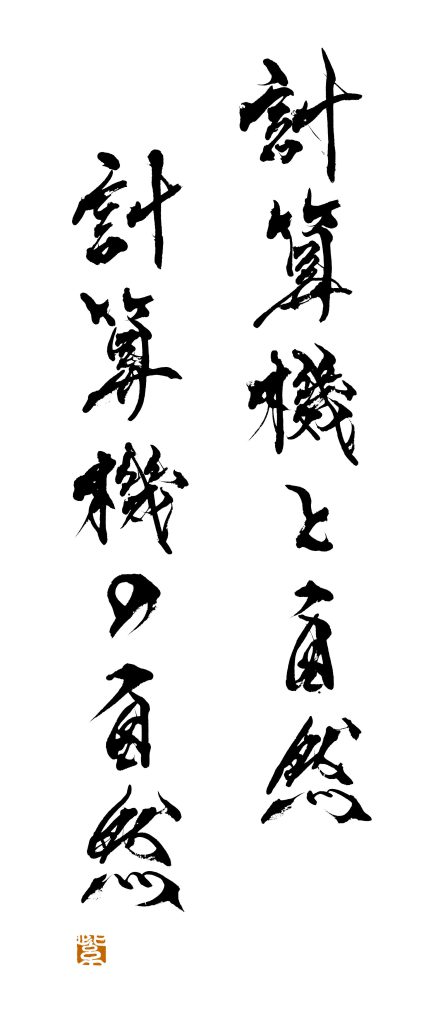 計算機と自然
計算機の自然